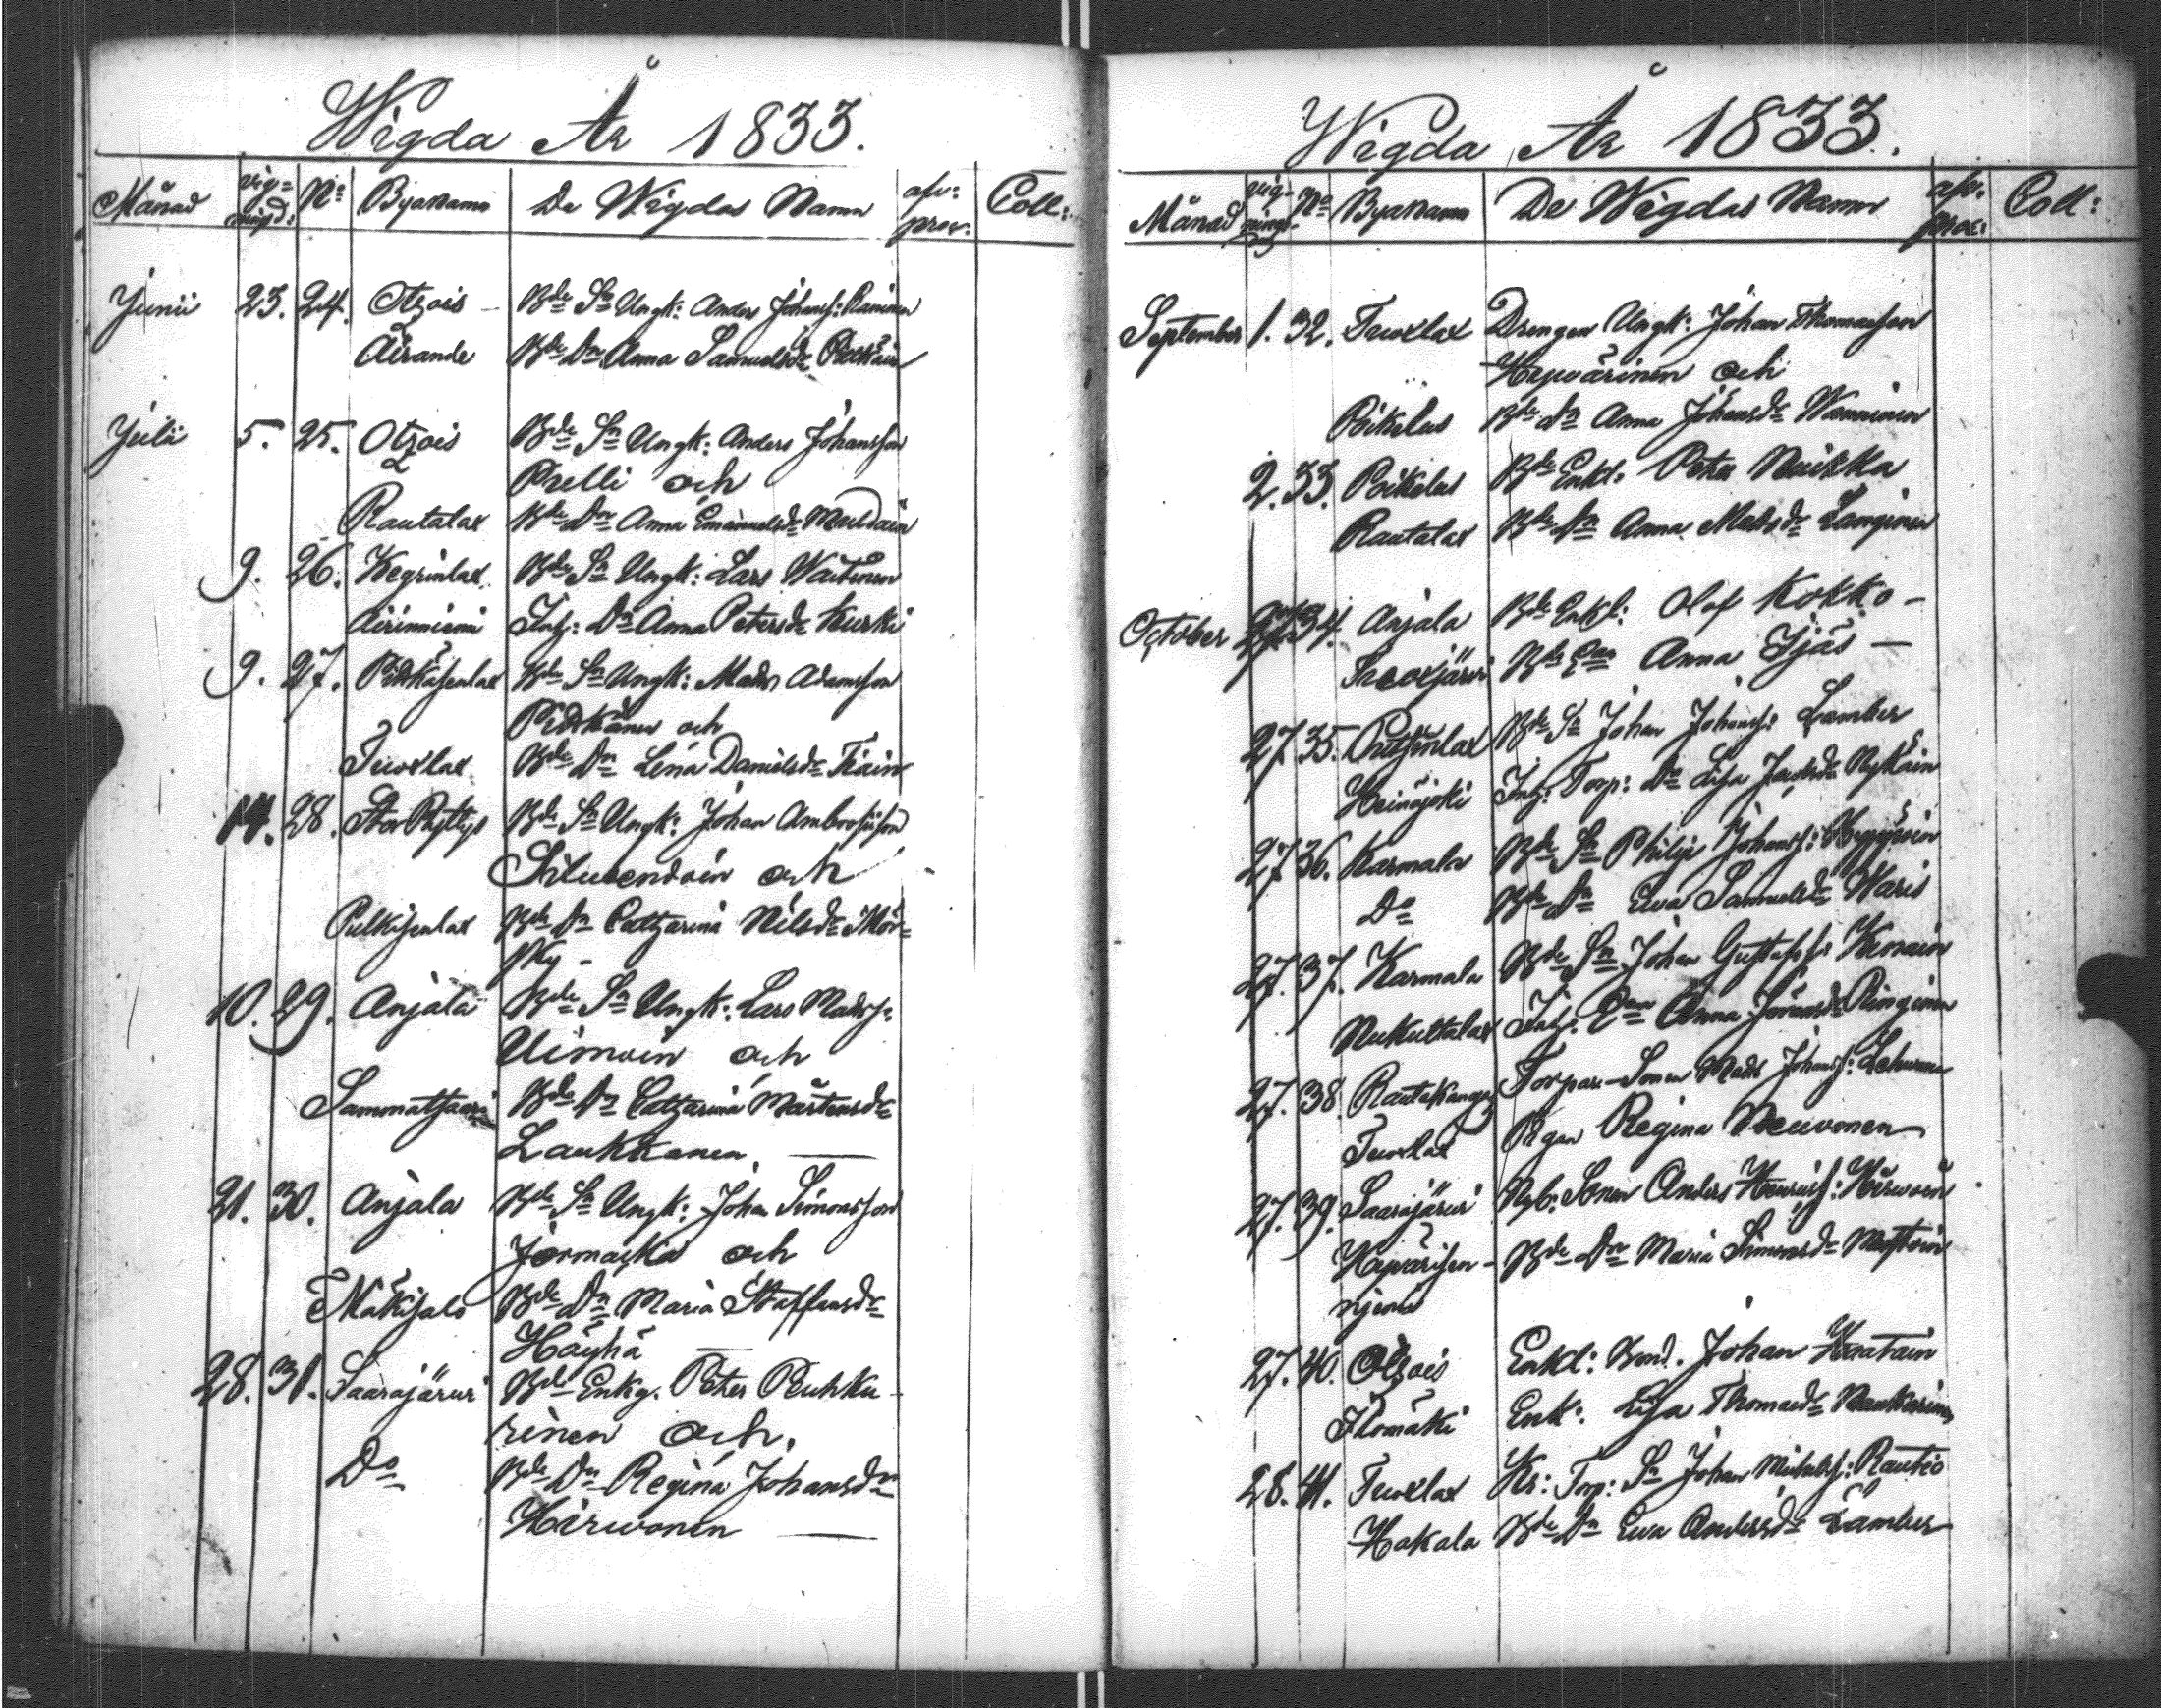 Wigda År 1833.
Månad vig= nings: No Byanamn De Wigdas Namn afv: prov: Coll:
Junii 23. 24. Otsois Bde Sn Ungk: Anders Johansf: Raninen
Äirande Bde Dn Anna Samuelsdr
Julii 5. 25. Otsois Bde Sn Ungk: Anders Johansson
Prelli och
Rautalax Bde Dn Anna Emanuelsdr
9. 26. Kegrinlax Bde Sn Ungk: Lars Waitinen
Äirinniemi Inh: Dn Anna Petersdr Kurki
9. 27. Pitkäsenlax Bde Sn Ungk: Mads Adamsson
Pitkänen och
Tervlax Bde Dn Lena Danielsdr
14. 28. Stor Pyttys Bde Sn Ungk: Johan Ambrosiison
och
Pulkisenlax Bde Dn Catharina Nilsdr Mör=
sky -
10. 29. Anjala Bde Sn Ungk: Lars Madsf.
Uimoin och
Sammatsaari Bde Dn Catharina Mårtensdr
Laukkanen
21. 30. Anjala Bde Sn Ungk: Johan Simonsson
Jormakka och
Mäkisalo Bde Dn Maria Staffansdr
Häyhä
28. 31. Saarajärvi Bde Enkg. Peter Puhku-
rinen och
Do Bde Dn Regina Johansdr
Hirwonen
Wigda År 1833.
Månad vig- nings- No Byanamn De Wigdas Namn afv: prov: Coll:
September 1. 32. Tervlax Drengen Ungk: Johan Thomasson
Hyvärinen och
Poikelus Bde Dn Anna Johansdr Wanninen
2. 33. Poikelus Bde Enkl: Peter Nuikka
Rautalax Bde Dn Anna Madsdr Langinen
October 34. Anjala Bde Enkl: Olof Kokko -
Suoxjärvi Bde Anna Ijäs -
27. 35. Bde Sn Johan Johansf: Lamber
Heinäjoki Inh: Torp: Dn Lisa Nykäin
27. 36. Karmala Bde Sn Philip Johansf:
Do Bde Dn Ewa Samuelsdr Waris
27. 37. Karmala Bde Sn Johan Gustafsf:
Inh: Anna
27. 38. Rautakangas Torpare-Sonen Mads Johansf:
Tervlax Pgan Regina Neuvonen
27. 39. Saarajärvi Nyb: Sonen Anders Henricsf: Hirwoin
Hyvärisen- Bde Dn Maria Simonsdr
njemi
27. 40. Otsois Enkl: Bond. Johan Haatain
Ilomäki Enk: Lisa Thomasdr
28. 41. Tervlax Kr: Torp: Sn Johan Michelsf: Rautio
Hakala Bde Dn Ewa Andersdr Lamber